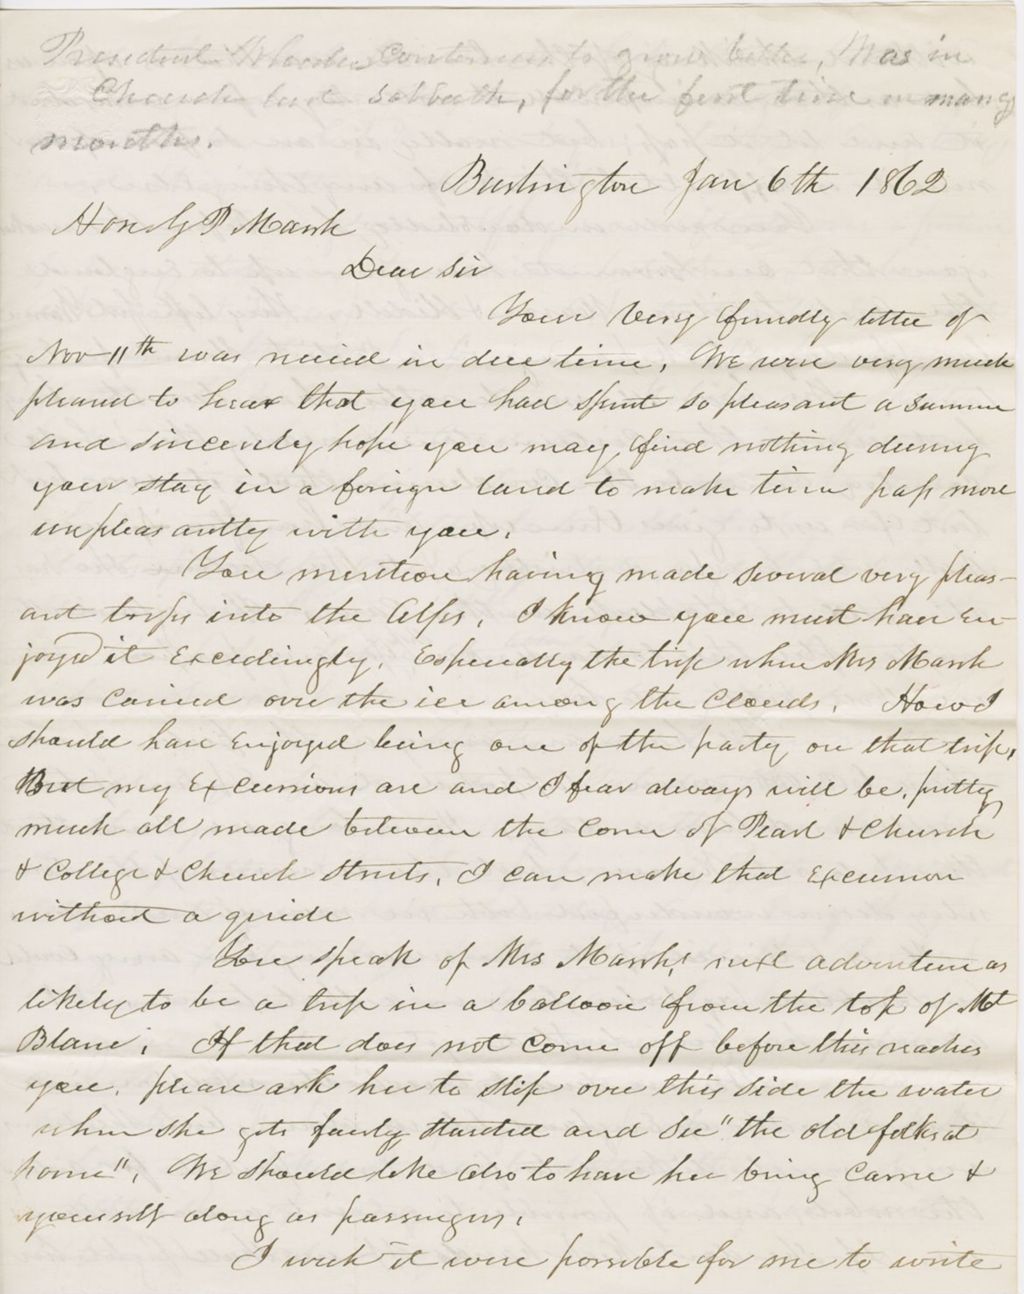 President Wheeler continues to grow better, Was in
Church last sabbath, for the first time in many
months.
Burlington Jan 6th 1862
Hon G P Marsh
Dear Sir
Your very friendly letter of
Nov 11th was received in due time, We were very much
pleased to hear that you had spent so pleasant a summer
and sincerely hope you may find nothing during
your stay in a foreign land to make time pass more
unpleasantly with you.
You mention having made several very pleas-
ant trips into the Alps, I know you must have en-
joyed it Excedingly, Especially the trip when Mrs Marsh
was carried over the ice among the Clouds. How I
should have enjoyed being one of the party on that trip,
But my Excursions are and I fear always will be, pretty
much all made between the corner of Pearl & Church
& College & Church streets, I can make that Excursion
without a guide
You speak of Mrs Marsh's next adventure as
likely to be a trip in a balloon from the top of Mt
Blanc, If that does not come off before this reaches
you, please ask her to slip over this side the water
when she gets fairly started and see "the old folks at
home", We should like also to have her bring Carrie &
yourself along as passengers,
I wish it were possible for me to write